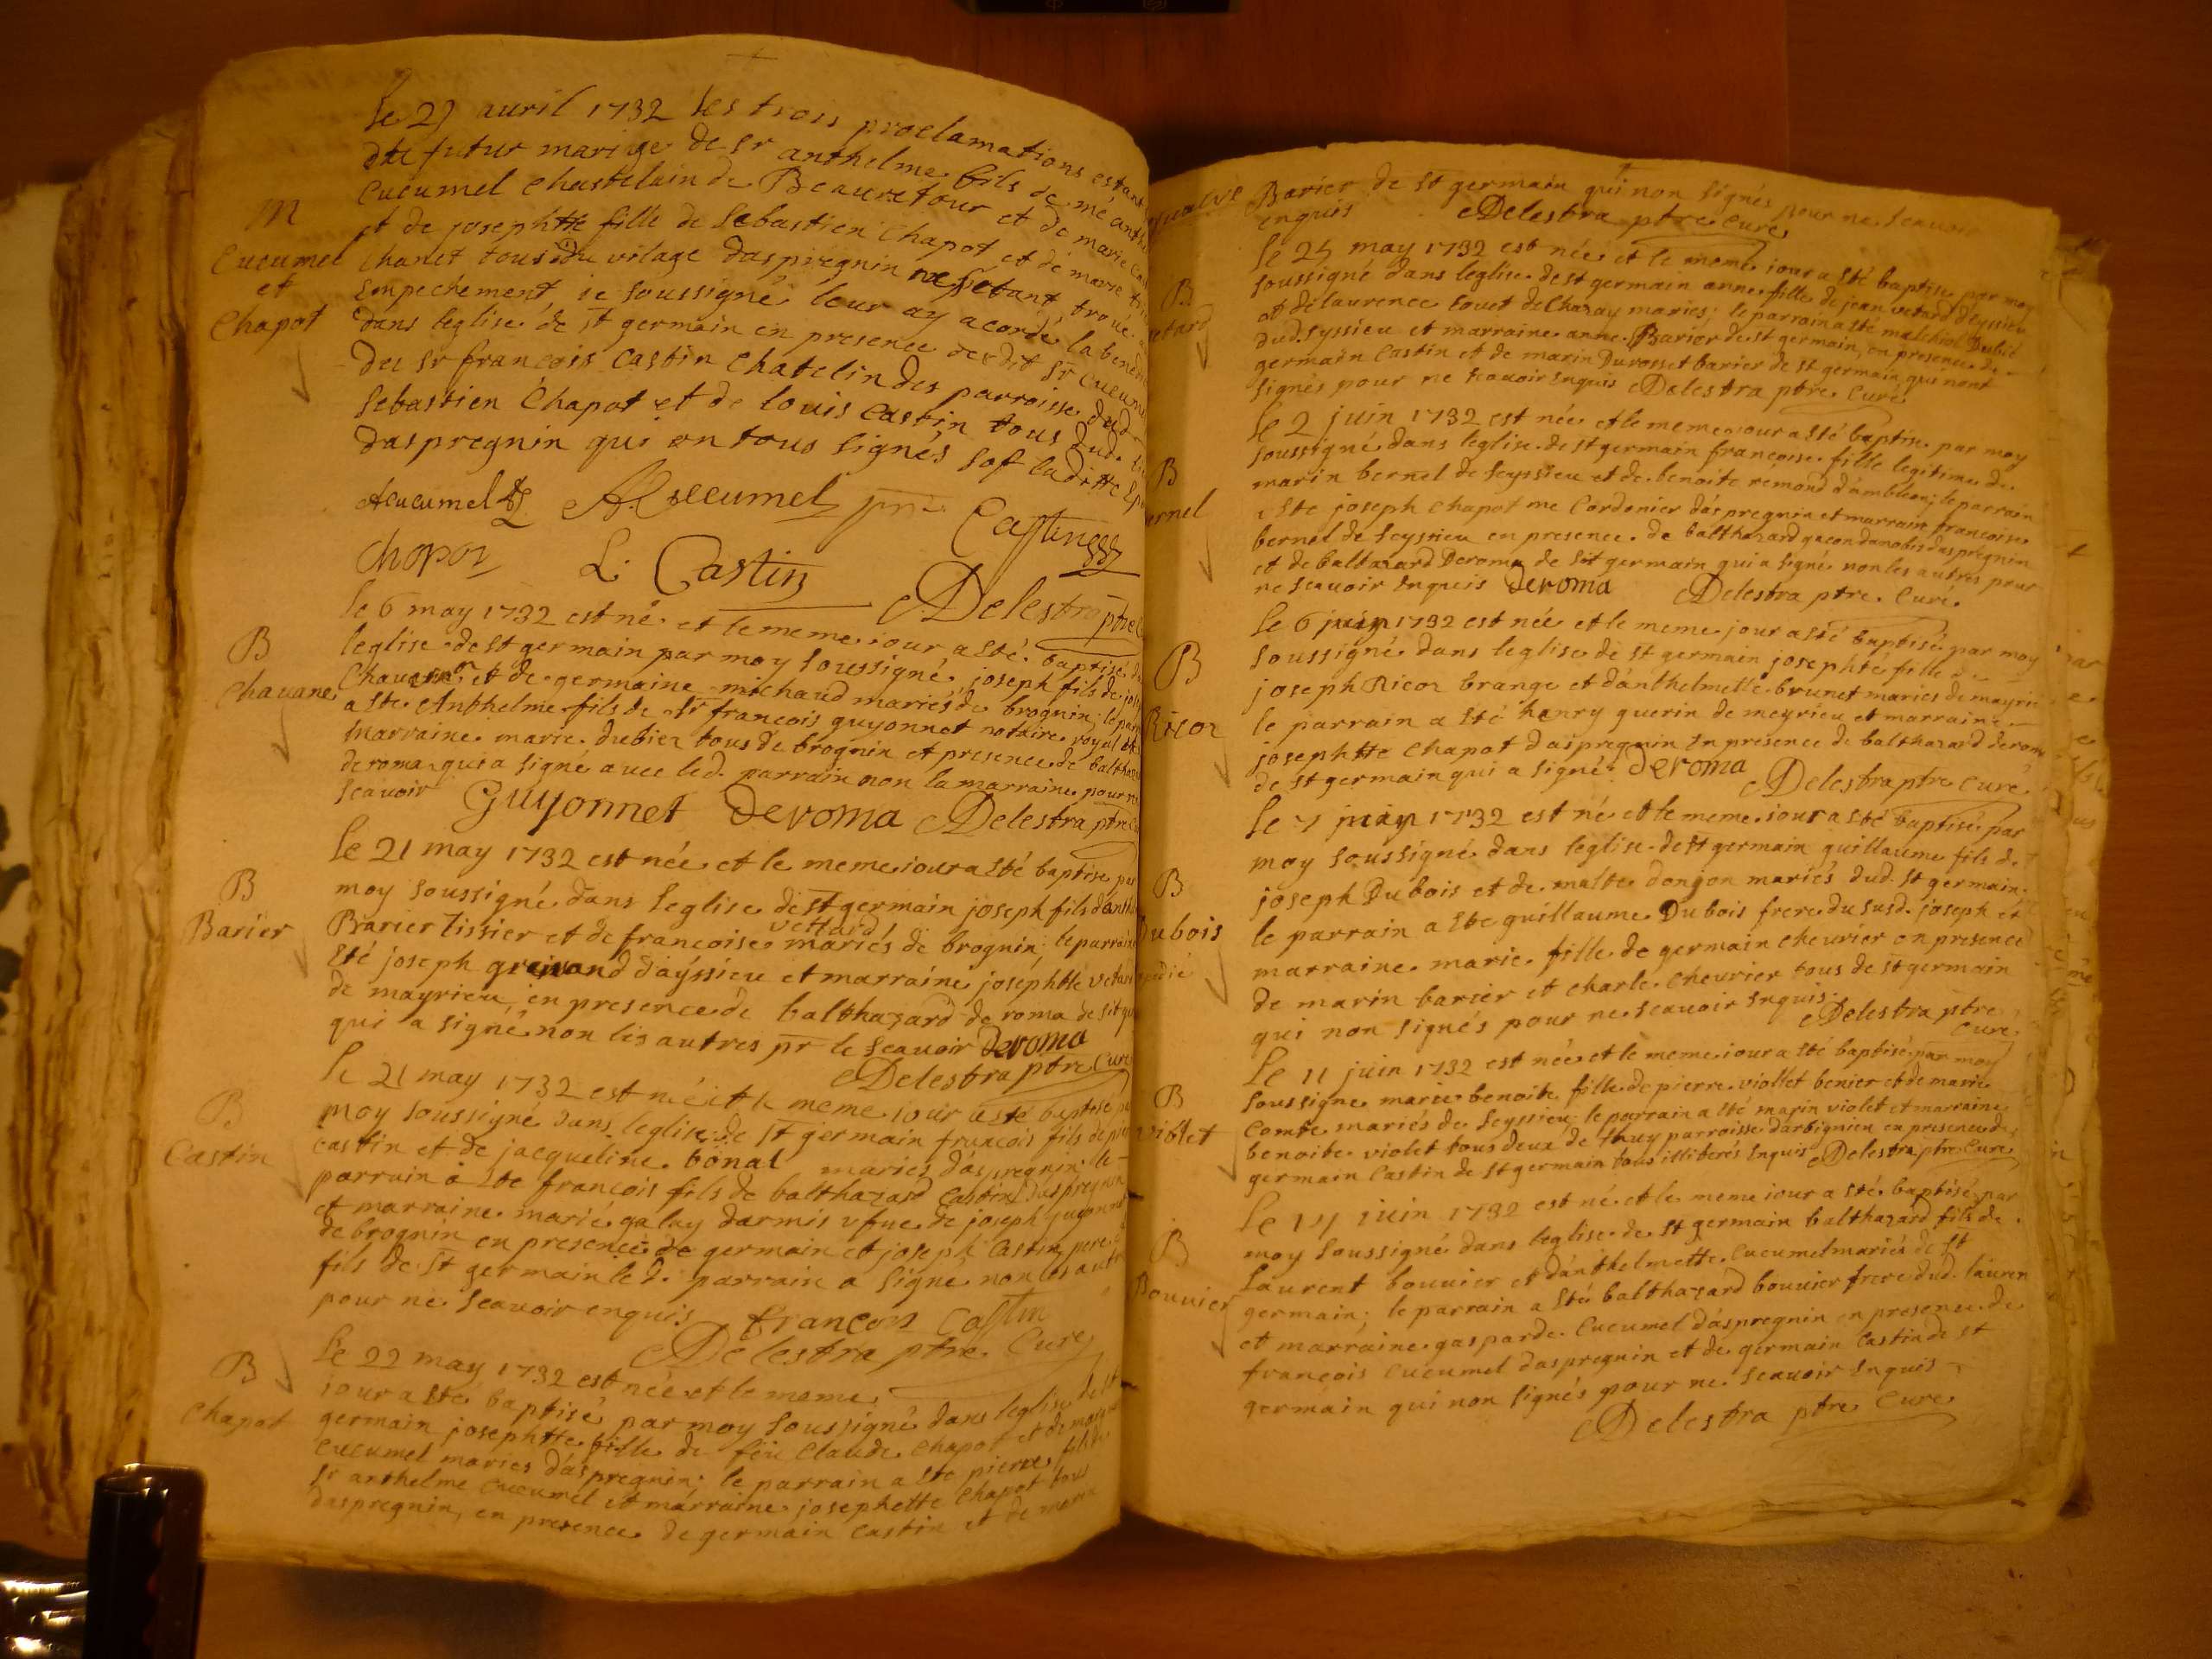 Le 29 auril 1732 les trois proclamations estant
du futur mariage de sr anthelme fils de me anth
Cucumel Chastelain de Beauretour et de marie
et de josephtte fille de Sebastien Chapot et de marie
Chanet tous du vilage daspregnin ne sestant trouué
Empechement, ie soussigné leur ay acordé la bened
dans leglise de st germain en presence dudit sr Cucum
des sr francois Castin Chatelin des parroisse dud
Sebastien Chapot et de louis Castin tous dud.
daspregnin qui on tous signés sof laditte Ep
M
Cucumel
et
Chapot
ACucumel
ACucumel
Casting
Chopot
L. Castin
Delestra ptre
B
Chauane
le 6 may 1732 est né et le meme iour a sté baptisé
leglise de st germain par moy soussigné, joseph fils de jos
et de germaine michaud mariés de brognin; le par
a ste Anthelme fils de sr francois guyonnet notaire royal et
Marraine marie dubiez tous de brognin et presence de baltha
deroma qui a signé auec led. parrain non la marraine pour ne
scauoir Guyonnet Deroma Delestra ptre
B
Barier
le 21 may 1732 est née et le meme iour a sté baptise par
moy soussigné dans leglise de st germain joseph fils danth
vettard
Barier tissier et de francoise mariés de brognin; le parrain
Eté joseph dayssieu et marraine josephtte vetard
de mayrieu, en presence de balthazard de roma de st ge
qui a signé non les autres pr le scauoir Deroma
Delestra ptre Curé
B
Castin
le 21 may 1732 est né et le meme iour a sté baptisé p
moy soussigné dans leglise de st germain francois fils de pie
Castin et de jacqueline bonat mariés daspregnin; le
parrain a ste francois fils de balthazard Castin daspregnin
et marraine marie galay darmis vfue de joseph guyonnet
de brognin en presence de germain et joseph Castin pere e
fils de st germain le d. parrain a signé non les autre
pour ne scauoir enquis francois Castin
Delestra ptre Curé
B
Chapot
le 22 may 1732 est née et le meme
iour a sté baptisé par moy soussigné dans leglise de st
germain josephtte fille de feu Claude Chapot et de
Cucumel maries daspregnin; le parrain a ste pierre fils de
sr anthelme Cucumel et marraine josephette Chapot tous
daspregnin, en presence de germain Castin et de marin
Barier de st germain qui non signés pour ne scauoir
enquis Delestra ptre Curé
B
etard
le 25 may 1732 est née et le meme iour a sté baptise par moy
soussigné dans leglise de st germain anne fille de jean vetard dEyssieu
et de laurence touet de Chazay mariés; le parrain a ste malchiol Dubié
dud. Eyssieu et marraine anne Barier de st germain, en presence de
germain Castin et de marin Durosset barier de st germain qui nont
signés pour ne scauoir Enquis Delestra ptre Curé
B
ernel
le 2 juin 1732 est née et le meme iour a sté baptise par moy
soussigné dans leglise de st germain francoise fille legitime de
marin bernel de seyssieu et de benoite rémond dambleon; le parrain
a ste joseph Chapot me Cordonier daspregnin et marrain francoise
bernel de seyssieu en presence de balthazard gacon danobis daspregnin
et de balthazard Deroma de st germain qui a signé non les autres pour
ne scauoir enquis Deroma Delestra ptre Curé.
B
Ricoz
le 6 juin 1732 est née et le meme jour a sté baptisé par moy
soussigné dans leglise de st germain josephte fille de
joseph Ricoz brange et danthelmette brunet maries de mayrie
le parrain a sté henry guerin de meyrieu et marraine
josephtte Chapot daspregnin En presence de balthazard derom
de st germain qui a signé Deroma Delestra ptre Curé
B
Dubois
le 7 juin 1732 est né et le meme iour a sté baptisé par
moy soussigné dans leglise de st germain guillaume fils de
joseph Dubois et de malte donjon mariés dud. st germain
le parrain a ste guillaume Dubois frere du susd. joseph et
marraine marie fille de germain cheurier en presence
de marin barier et charle cheurier tous de st germain
qui non signés pour ne scauoir Enquis. Delestra ptre
Curé
B
violet
Le 11 juin 1732 est née et le meme iour a sté baptisé par moy
soussigne marie benoite fille de pierre viollet benier et de marie
Comte mariés de Seyssieu; le parrain a sté marin violet et marraine
benoite violet tous deux de thuy parroisse darbignieu en presence de
germain Castin de st germain tous illiterés Enquis Delestra ptre Curé
B
Bouuier
Le 14 iuin 1732 est né et le meme iour a sté baptisé par
moy soussigné dans leglise de st germain balthazard fils de
laurent bouuier et danthelmette Cucumel mariés de st
germain; le parrain a sté balthazard bouuier frere dud. lauren
et marraine gasparde Cucumel daspregnin en presence de
francois Cucumel daspregnin et de germain Castin de st
germain qui non signés pour ne scauoir Enquis
Delestra ptre Curé